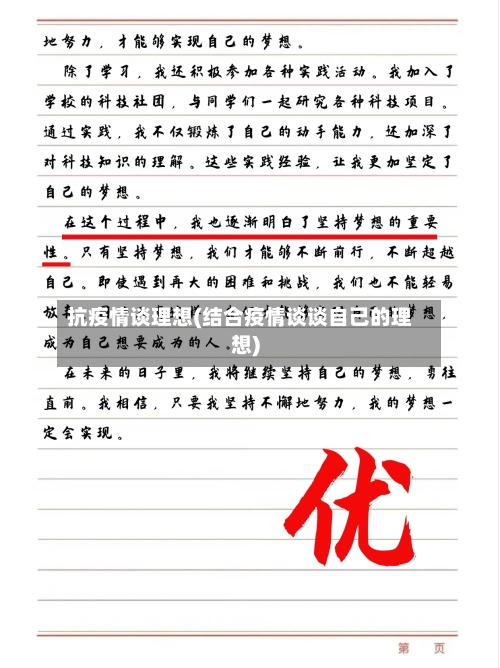 地努力，才能够实现自己的梦想。
除了学习，我还积极参加各种实践活动。我加入了
学校的科技社团，与同学们一起研究各种科技项目。
通过实践，我不仅锻炼了自己的动手能力，还加深了
对科技知识的理解。这些实践经验，让我更加坚定了
自己的梦想。
在这个过程中，我也逐渐明白了坚持梦想的重要
性。只有坚持梦想，我们才能够不断前行，不断超越
自己。即使遇到再大的困难和挑战，我们也不能轻易
放
抗疫情谈理想(结合疫情谈谈自己的理
想)
成为自己想要成为的人。
在未来的日子里，我将继续坚持自己的梦想，勇往
直前。我相信，只要我坚持不懈地努力，我的梦想一
定会实现。
优
第 页